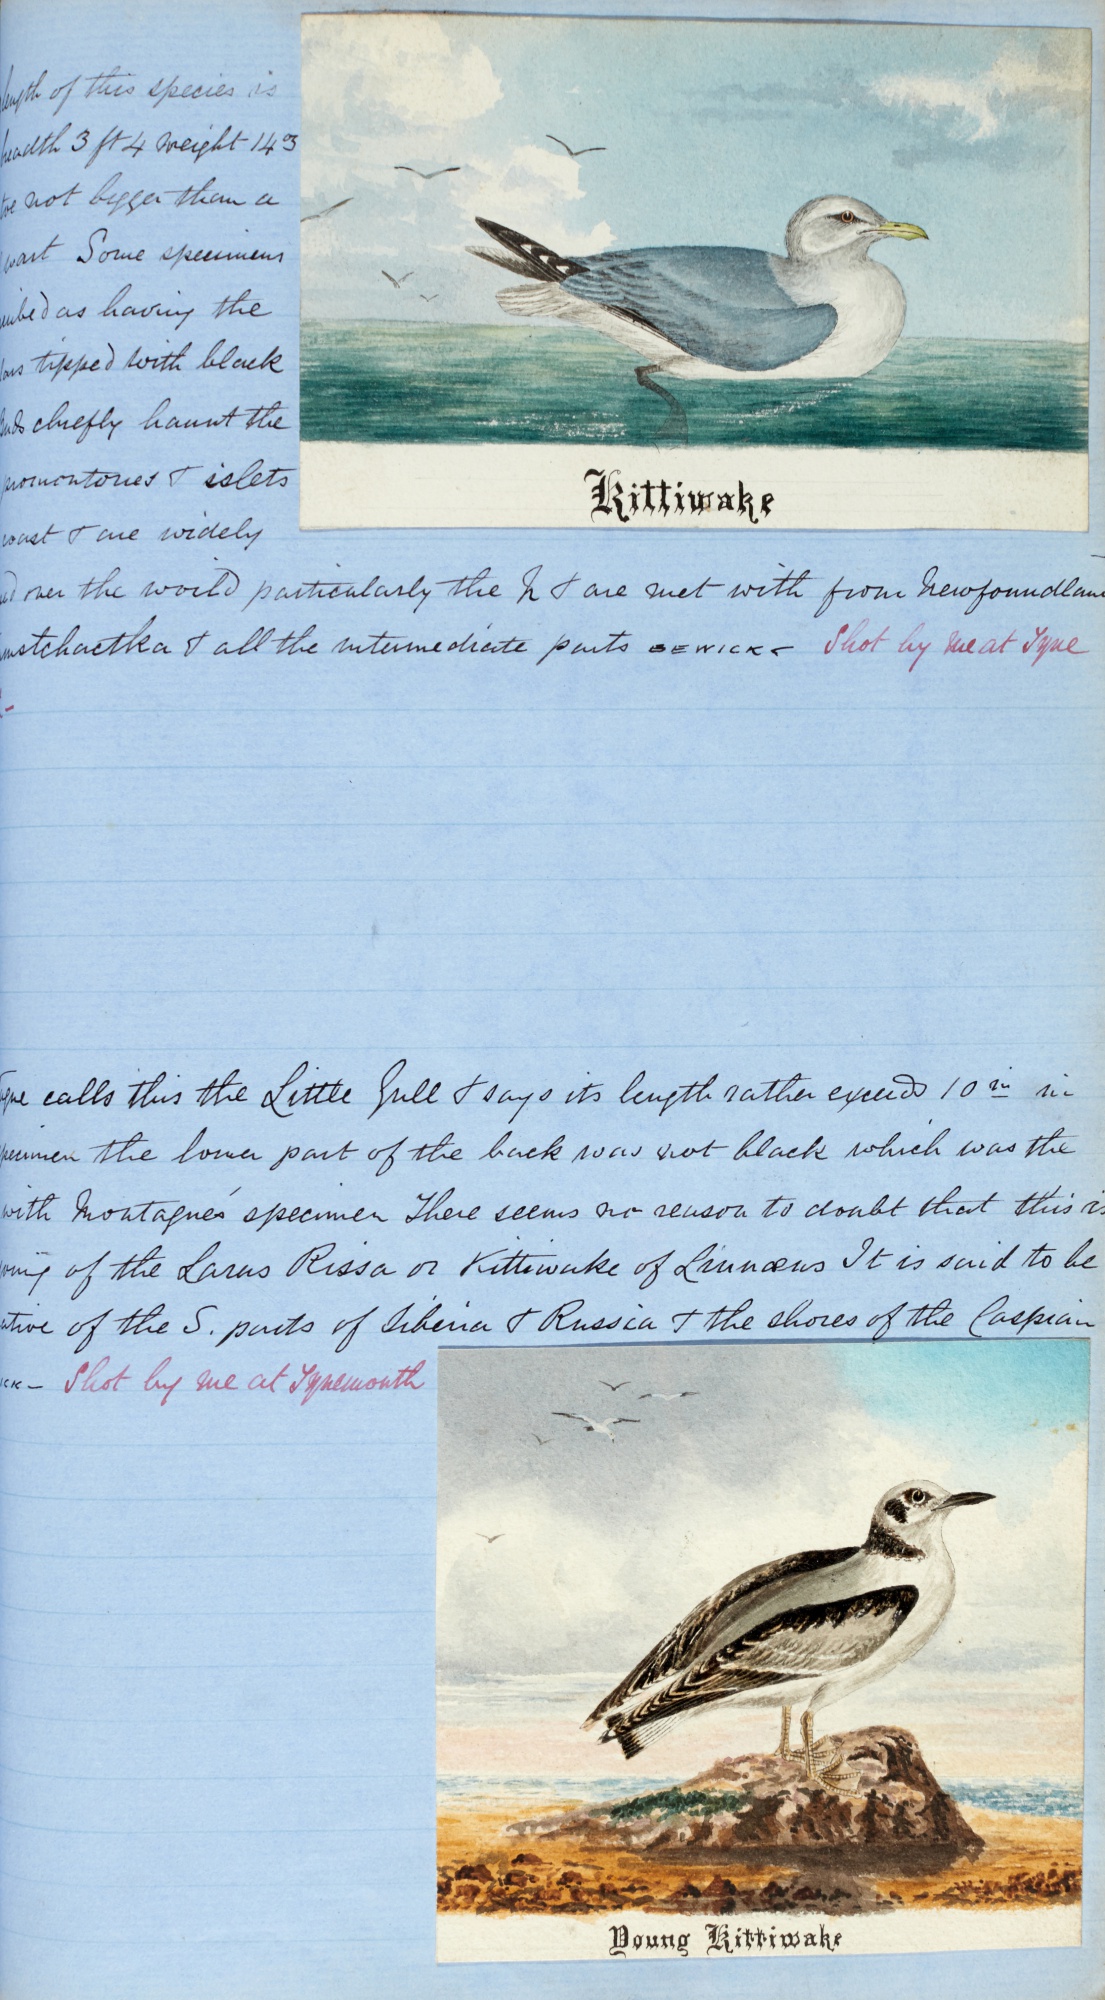 length of this species is
breadth 3 ft 4 weight 14 oz
toe not bigger than a
wart Some specimens
ribed as having the
tipped with black
chiefly haunt the
promontories & islets
coast & are widely
Kittiwake
ed over the world particularly the N & are met with from Newfoundland
amstchactka & all the intermediate parts BEWICK - Shot by me at Tyne
calls this the Little Gull & says its length rather exceeds 10 in in
specimen the lower part of the back was not black which was the
with Montagnes specimen There seems no reason to doubt that this is
oung of the Larus Rissa or Kittiwake of Linnæus It is said to be
ative of the S. parts of Siberia & Russia & the shores of the Caspian
ICK - Shot by me at Tynemouth
Young Kittiwake